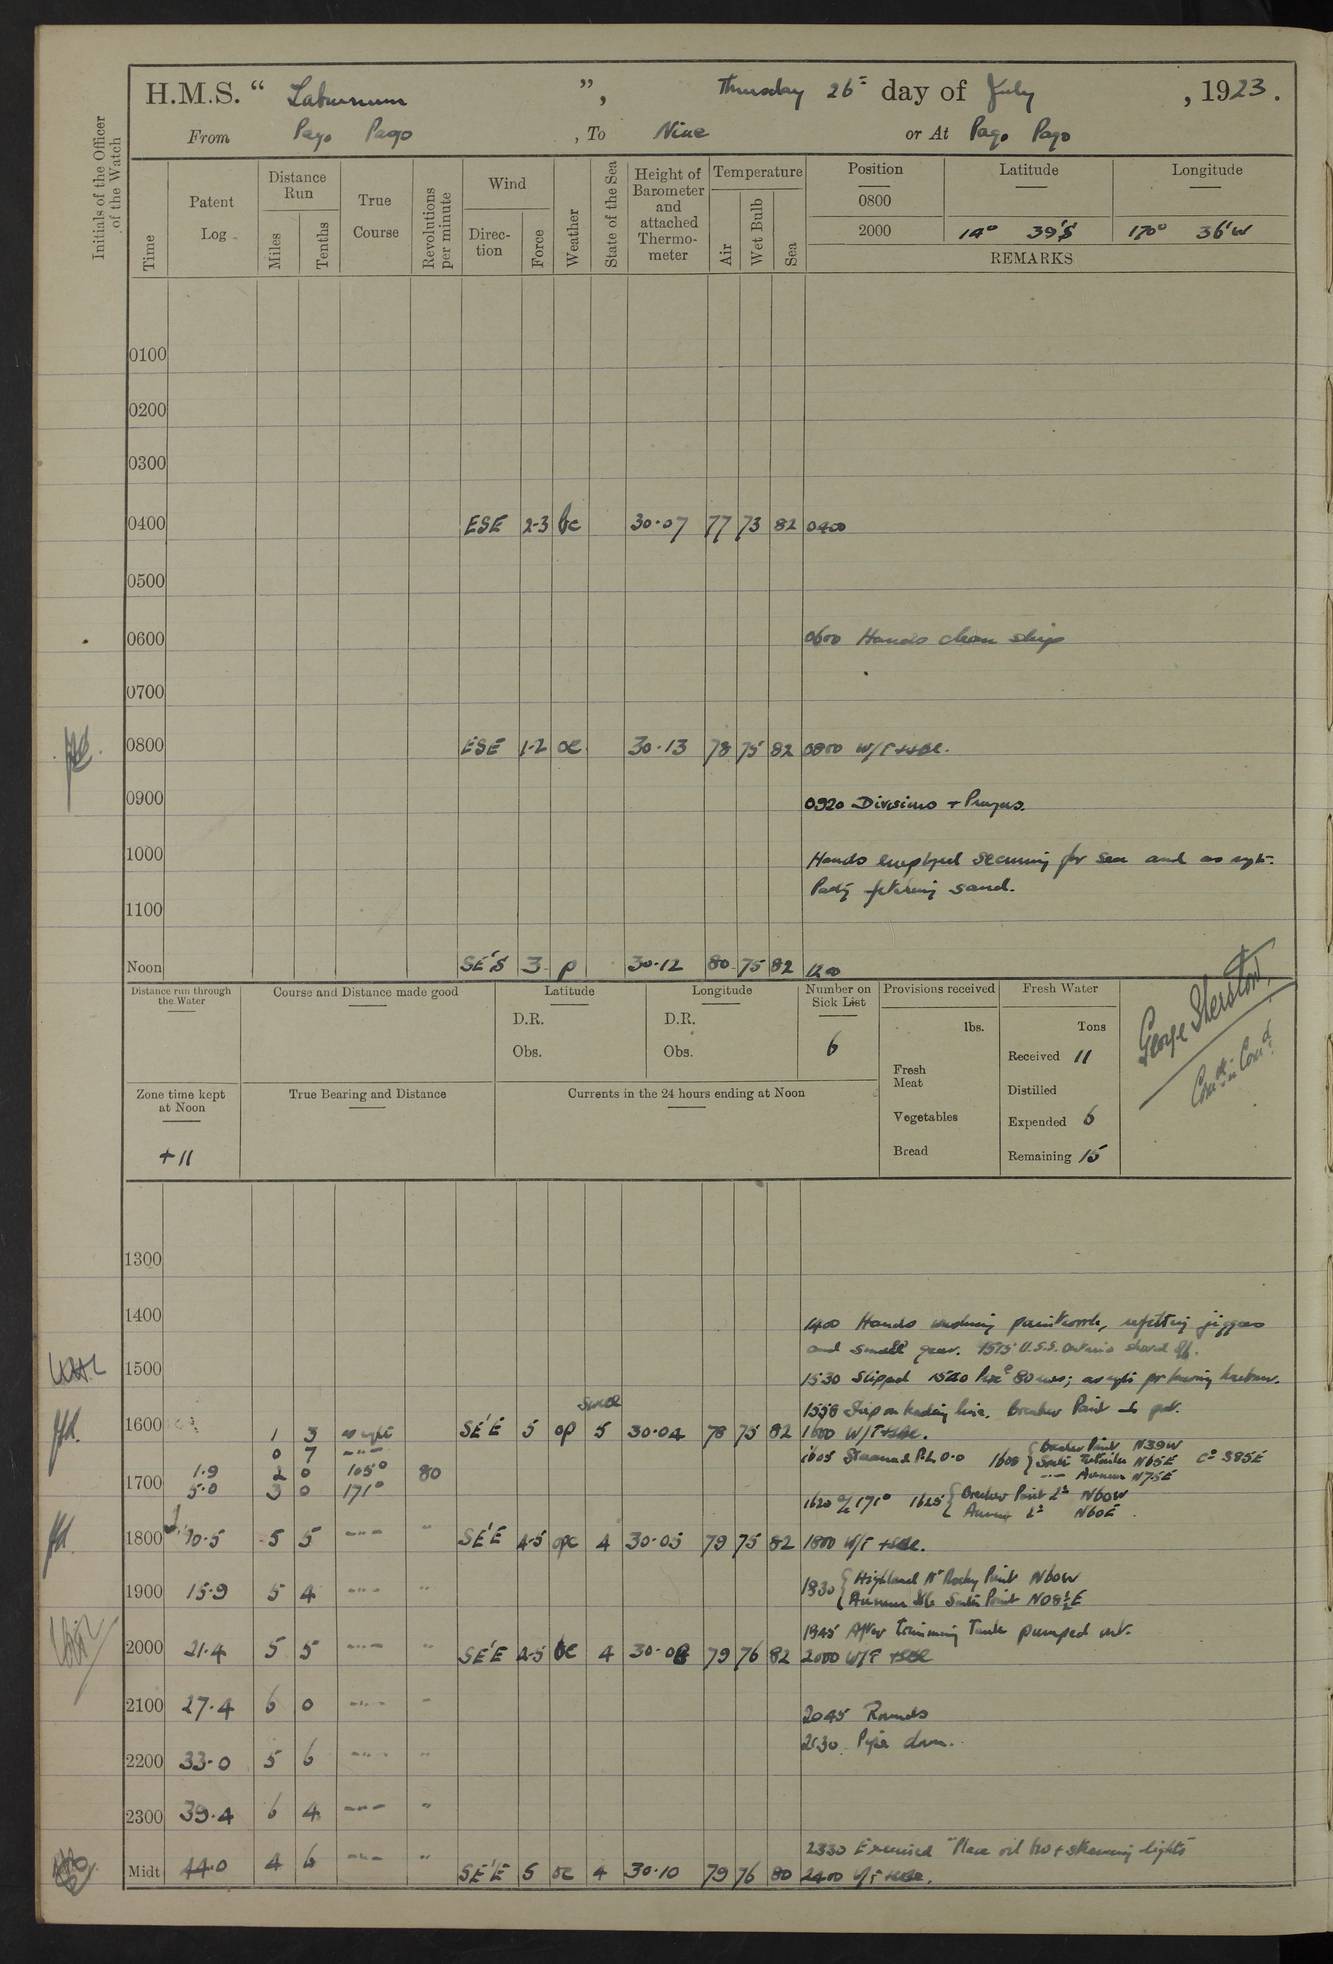 H.M.S. " Laburnum ", Thursday 26= day of July , 1923.
From Pago Pago , To Niue or At Pago Pago
Initials of the Officer of the Watch
Time
Patent Log
Distance Run
Miles
Tenths
True Course
Revolutions per minute
Wind
Direction
Force
Weather
State of the Sea
Height of Barometer and attached Thermometer
Temperature
Air
Wet Bulb
Sea
Position Latitude Longitude
0800
2000 14° 39'S 170° 36'W
REMARKS
0100
0200
0300
0400 ESE 2-3 bc 30·07 77 73 82 0400
0500
0600 0600 Hands clean ship
0700
0800 ESE 1-2 oc 30·13 78 75 82 0800 W/T
0900 0920 Divisions + Prayers.
1000 Hands employed securing for sea and as
Party fetching sand.
1100
Noon SE'S 3 p 30·12 80 75 82 1200
Distance run through the Water
Course and Distance made good
Latitude
D.R.
Obs.
Longitude
D.R.
Obs.
Number on Sick List
6
Provisions received
lbs.
Fresh Meat
Vegetables
Bread
Fresh Water
Tons
Received 11
Distilled
Expended 6
Remaining 15
George Sherston
Zone time kept at Noon
+11
True Bearing and Distance
Currents in the 24 hours ending at Noon
1300
1400 1400 Hands washing paintwork, refitting
and small gear. 1515 U.S.S. Ontario shoved off.
1500 1530 Slipped 80 revs; leaving harbour.
swell 1558 Ship on leading line. Breaker Point to port.
1600 1 3 SE'E 5 op 5 30·04 78 75 82 1600 W/T
0 7 1605 Streamed P.L. 0·0 1608 { Breaker Point N39W
N65E C° S85E
1·9 2 0 105° 80 Aunuu N75E
1700 5·0 3 0 171° 1620 a/c 171° 1625 { Breaker Point N60W
Aunuu N60E
1800 10·5 5 5 -"- " SE'E 4-5 opc 4 30·05 79 75 82 1800 W/T
1900 15·9 5 4 -"- " 1830 { Highland Rocky Point N60W
Aunuu South Point N08½E
1945 After trimming Tank pumped out.
2000 21·4 5 5 -"- " SE'E 4-5 bc 4 30·08 79 76 82 2000 W/T
2100 27·4 6 0 -"- " 2045 Rounds
2130 Pipe down.
2200 33·0 5 6 -"- "
2300 39·4 6 4 -"- "
2330 Exercised "Place oil bow + steaming lights"
Midt 44·0 4 6 -"- " SE'E 5 oc 4 30·10 79 76 80 2400 W/T